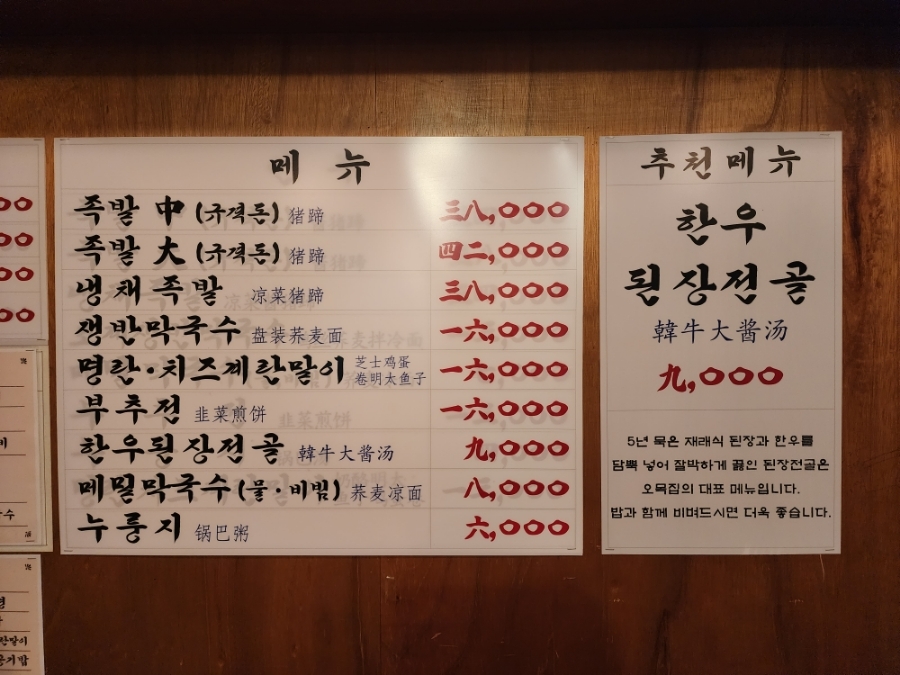 메뉴
족발 中 (규격돈) 猪蹄 三八,○○○
족발 大 (규격돈) 猪蹄 四二,○○○
냉채족발 凉菜猪蹄 三八,○○○
쟁반막국수 盘装荞麦面 一六,○○○
명란·치즈계란말이 芝士鸡蛋卷明太鱼子 一六,○○○
부추전 韭菜煎饼 一六,○○○
한우된장전골 韓牛大酱汤 九,○○○
메밀막국수(물·비빔) 荞麦凉面 八,○○○
누룽지 锅巴粥 六,○○○
추천메뉴
한우
된장전골
韓牛大酱汤
九,○○○
5년 묵은 재래식 된장과 한우를
담뿍 넣어 잘박하게 끓인 된장전골은
오목집의 대표 메뉴입니다.
밥과 함께 비벼드시면 더욱 좋습니다.
란말이
공기밥